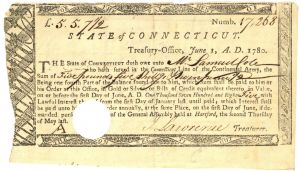 L. 5.5.7½ Numb. 17,268
STATE of CONNECTICUT.
Treasury-Office, June 1, A. D. 1780.
THE State of CONNECTICUT doth owe unto Mr Samuel Cole
who hath served in the Connecticut Line of the Continental Army, the
Sum of Five pounds five Shills & Seven pence
Being one fourth Part of the Balance found due to him, which shall be paid to him or
his Order at this Office, in Gold or Silver or Bills of Credit equivalent thereto in Value,
on or before the first Day of June, A. D. One Thousand Seven Hundred and Eighty-Five with
Lawful Interest therefor from the first Day of January last until paid; which Interest shall
be paid to him or order annually, at the same Place, on the first Day of June, if de-
manded, pursuant to of the General Assembly held at Hartford, the second Thursday
of May last.
A J Lawrence Treasurer.